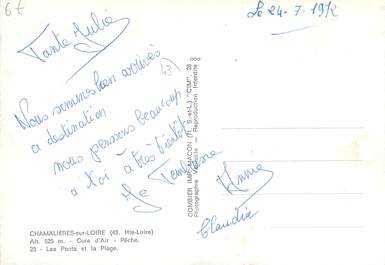 6€
Le 24-7-1972
Tante Julie
Nous sommes bien arrivés
a destination
nous pensons beaucoup
a toi à très bientôt
43
Anne
Claudie
COMBIER IMP. MACON (T. S.-et-L.) "CIM"
Photographie Véritable - Reproduction Interdite
CHAMALIERES-sur-LOIRE (43. Hte-Loire)
Alt. 525 m. - Cure d'Air - Pêche.
23 - Les Ponts et la Plage.